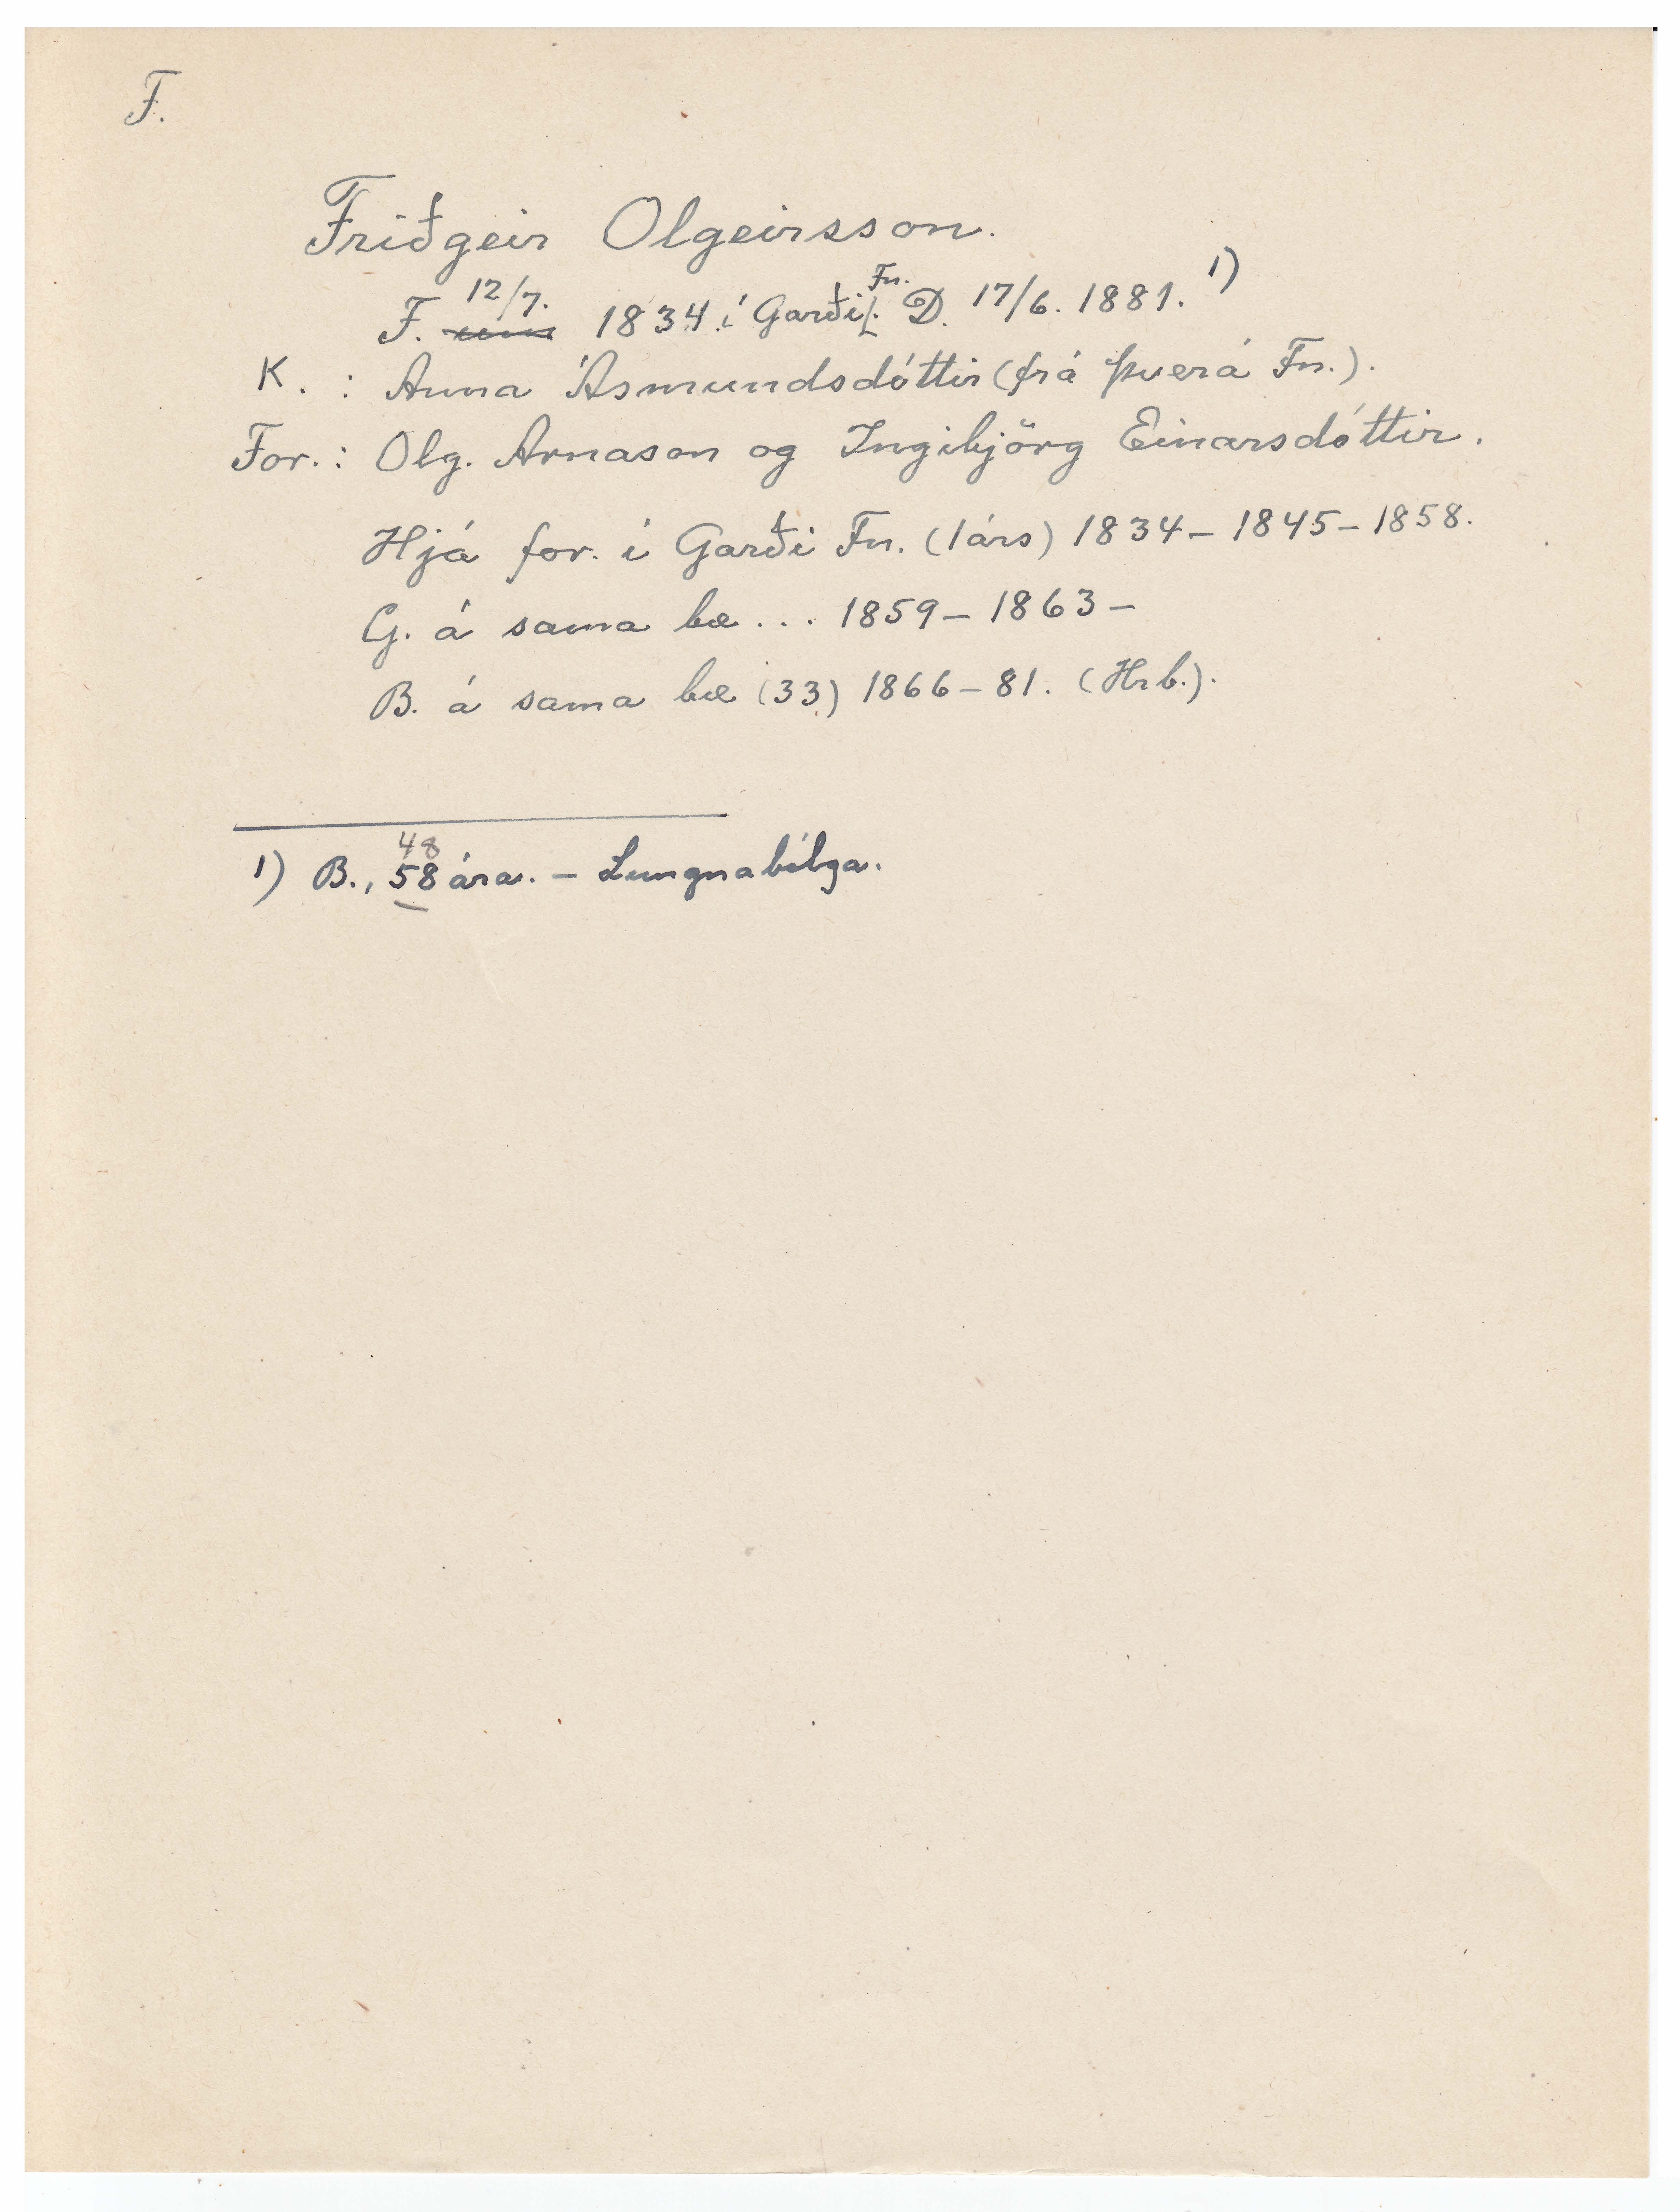 F.
Friðgeir Olgeirsson.
F. 12/7. 1834 í Garði Fn. D. 17/6. 1881. 1)
K. : Anna Ásmundsdóttir (frá Þverá Fn.).
For.: Olg. Arnason og Ingibjörg Einarsdóttir.
Hjá for. í Garði Fn. (1 árs) 1834 – 1845 – 1858.
G. á sama bæ ... 1859 – 1863 –
B. á sama bæ (33) 1866 – 81. (Hrb.).
48
1) B., 58 ára. – Lungnabólga.